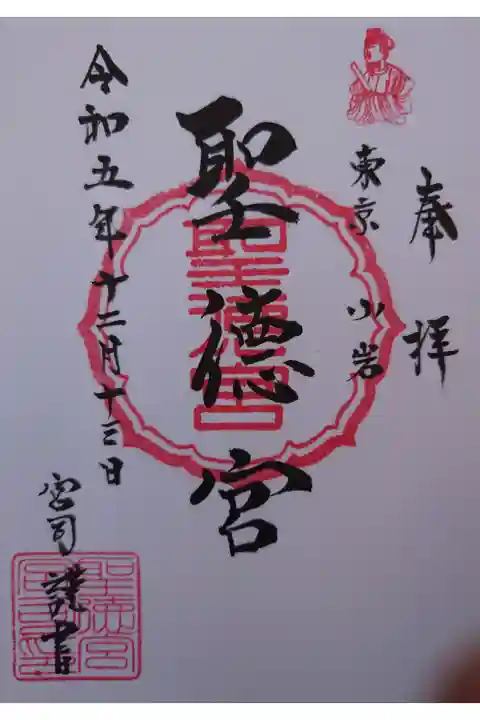 奉拝
東京 小岩
聖徳宮
聖徳宮
令和五年十二月十三日
宮司 謹書